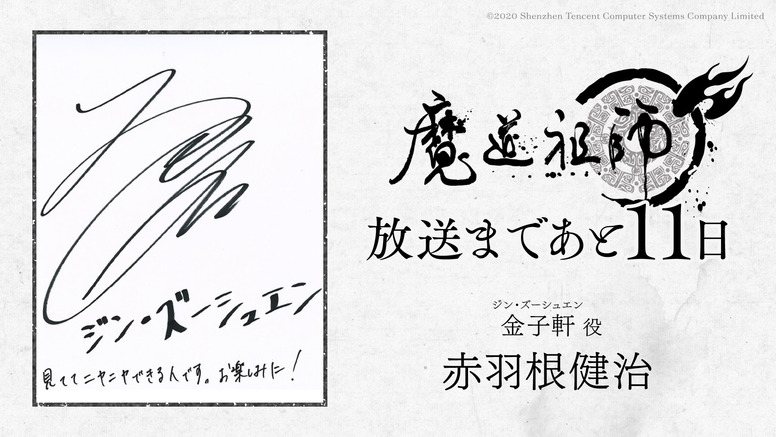 ©2020 Shenzhen Tencent Computer Systems Company Limited
魔道祖師
放送まであと11日
ジン・ズーシュエン
金子軒 役
赤羽根健治
ジン・ズーシュエン
見ててニヤニヤできる人です。お楽しみに!